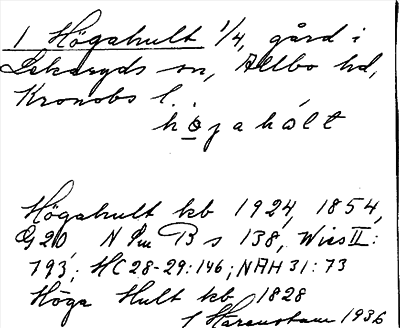 1 Högahult 1/4, gård i
Lekaryds sn, Allbo hd,
Kronobs l.
hø̠gahált
Högahult kb 1924, 1854,
G 20, N Sm B s 138, Wies II:
793; HC 28-29:146; NAH 31:73
Höga Hult kb 1828
1936